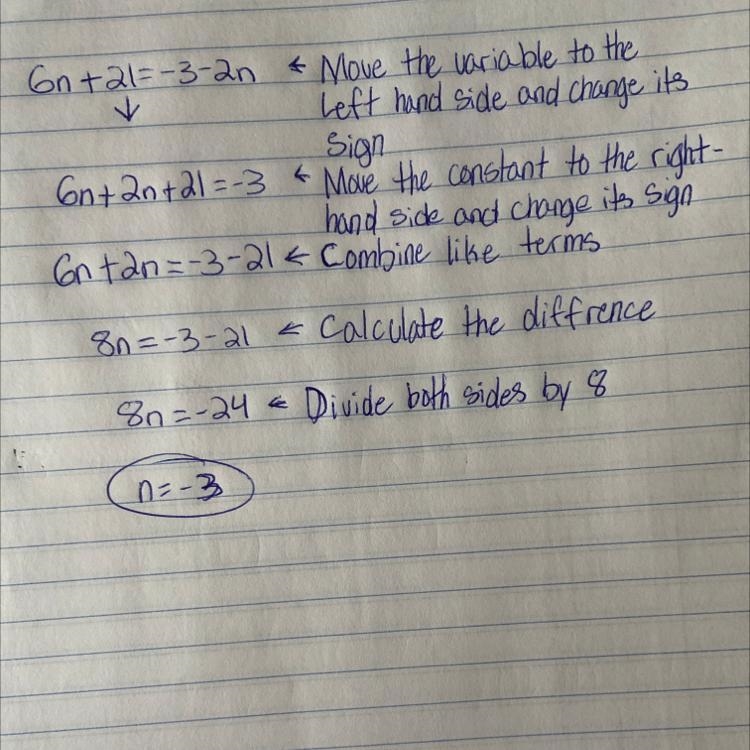 6n+21=-3-2n ← Move the variable to the
↓ Left hand side and change its
Sign
6n+2n+21=-3 ← Move the constant to the right-
hand side and change its sign
6n+2n=-3-21 ← Combine like terms
8n=-3-21 ← Calculate the diffrence
8n=-24 ← Divide both sides by 8
n=-3